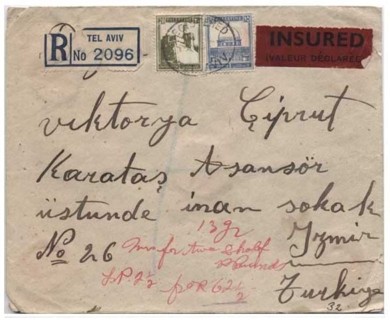 R
TEL AVIV
No 2096
INSURED
(VALEUR DÉCLARÉE)
Viktorya Çiprut
Karataş Asansör
üstunde inan sokak
No 26
Izmir
Turkiye
13 gr
Ins for two & half
Pounds
L.P. 2½
for 62½
32